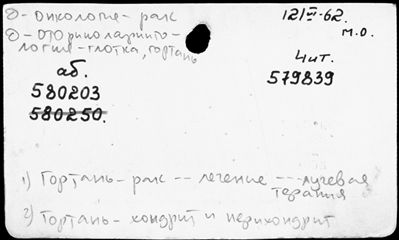 ②-Онкология-рак
②-Оториноларинго-
логия-глотка, гортань
12/VI-62.
М.О.
аб.
580203
580250.
Чит.
579839
1) Гортань-рак -- лечение --- лучевая
терапия
2) Гортань- хондрит и перихондрит